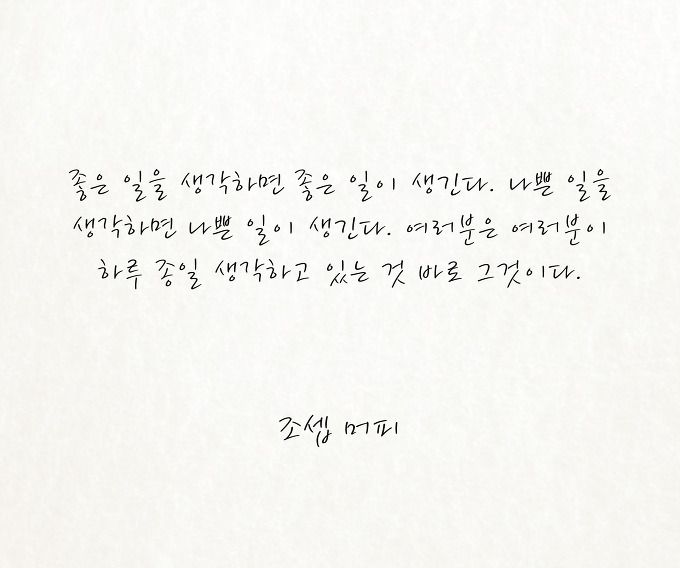 좋은 일을 생각하면 좋은 일이 생긴다. 나쁜 일을
생각하면 나쁜 일이 생긴다. 여러분은 여러분이
하루 종일 생각하고 있는 것 바로 그것이다.
조셉 머피